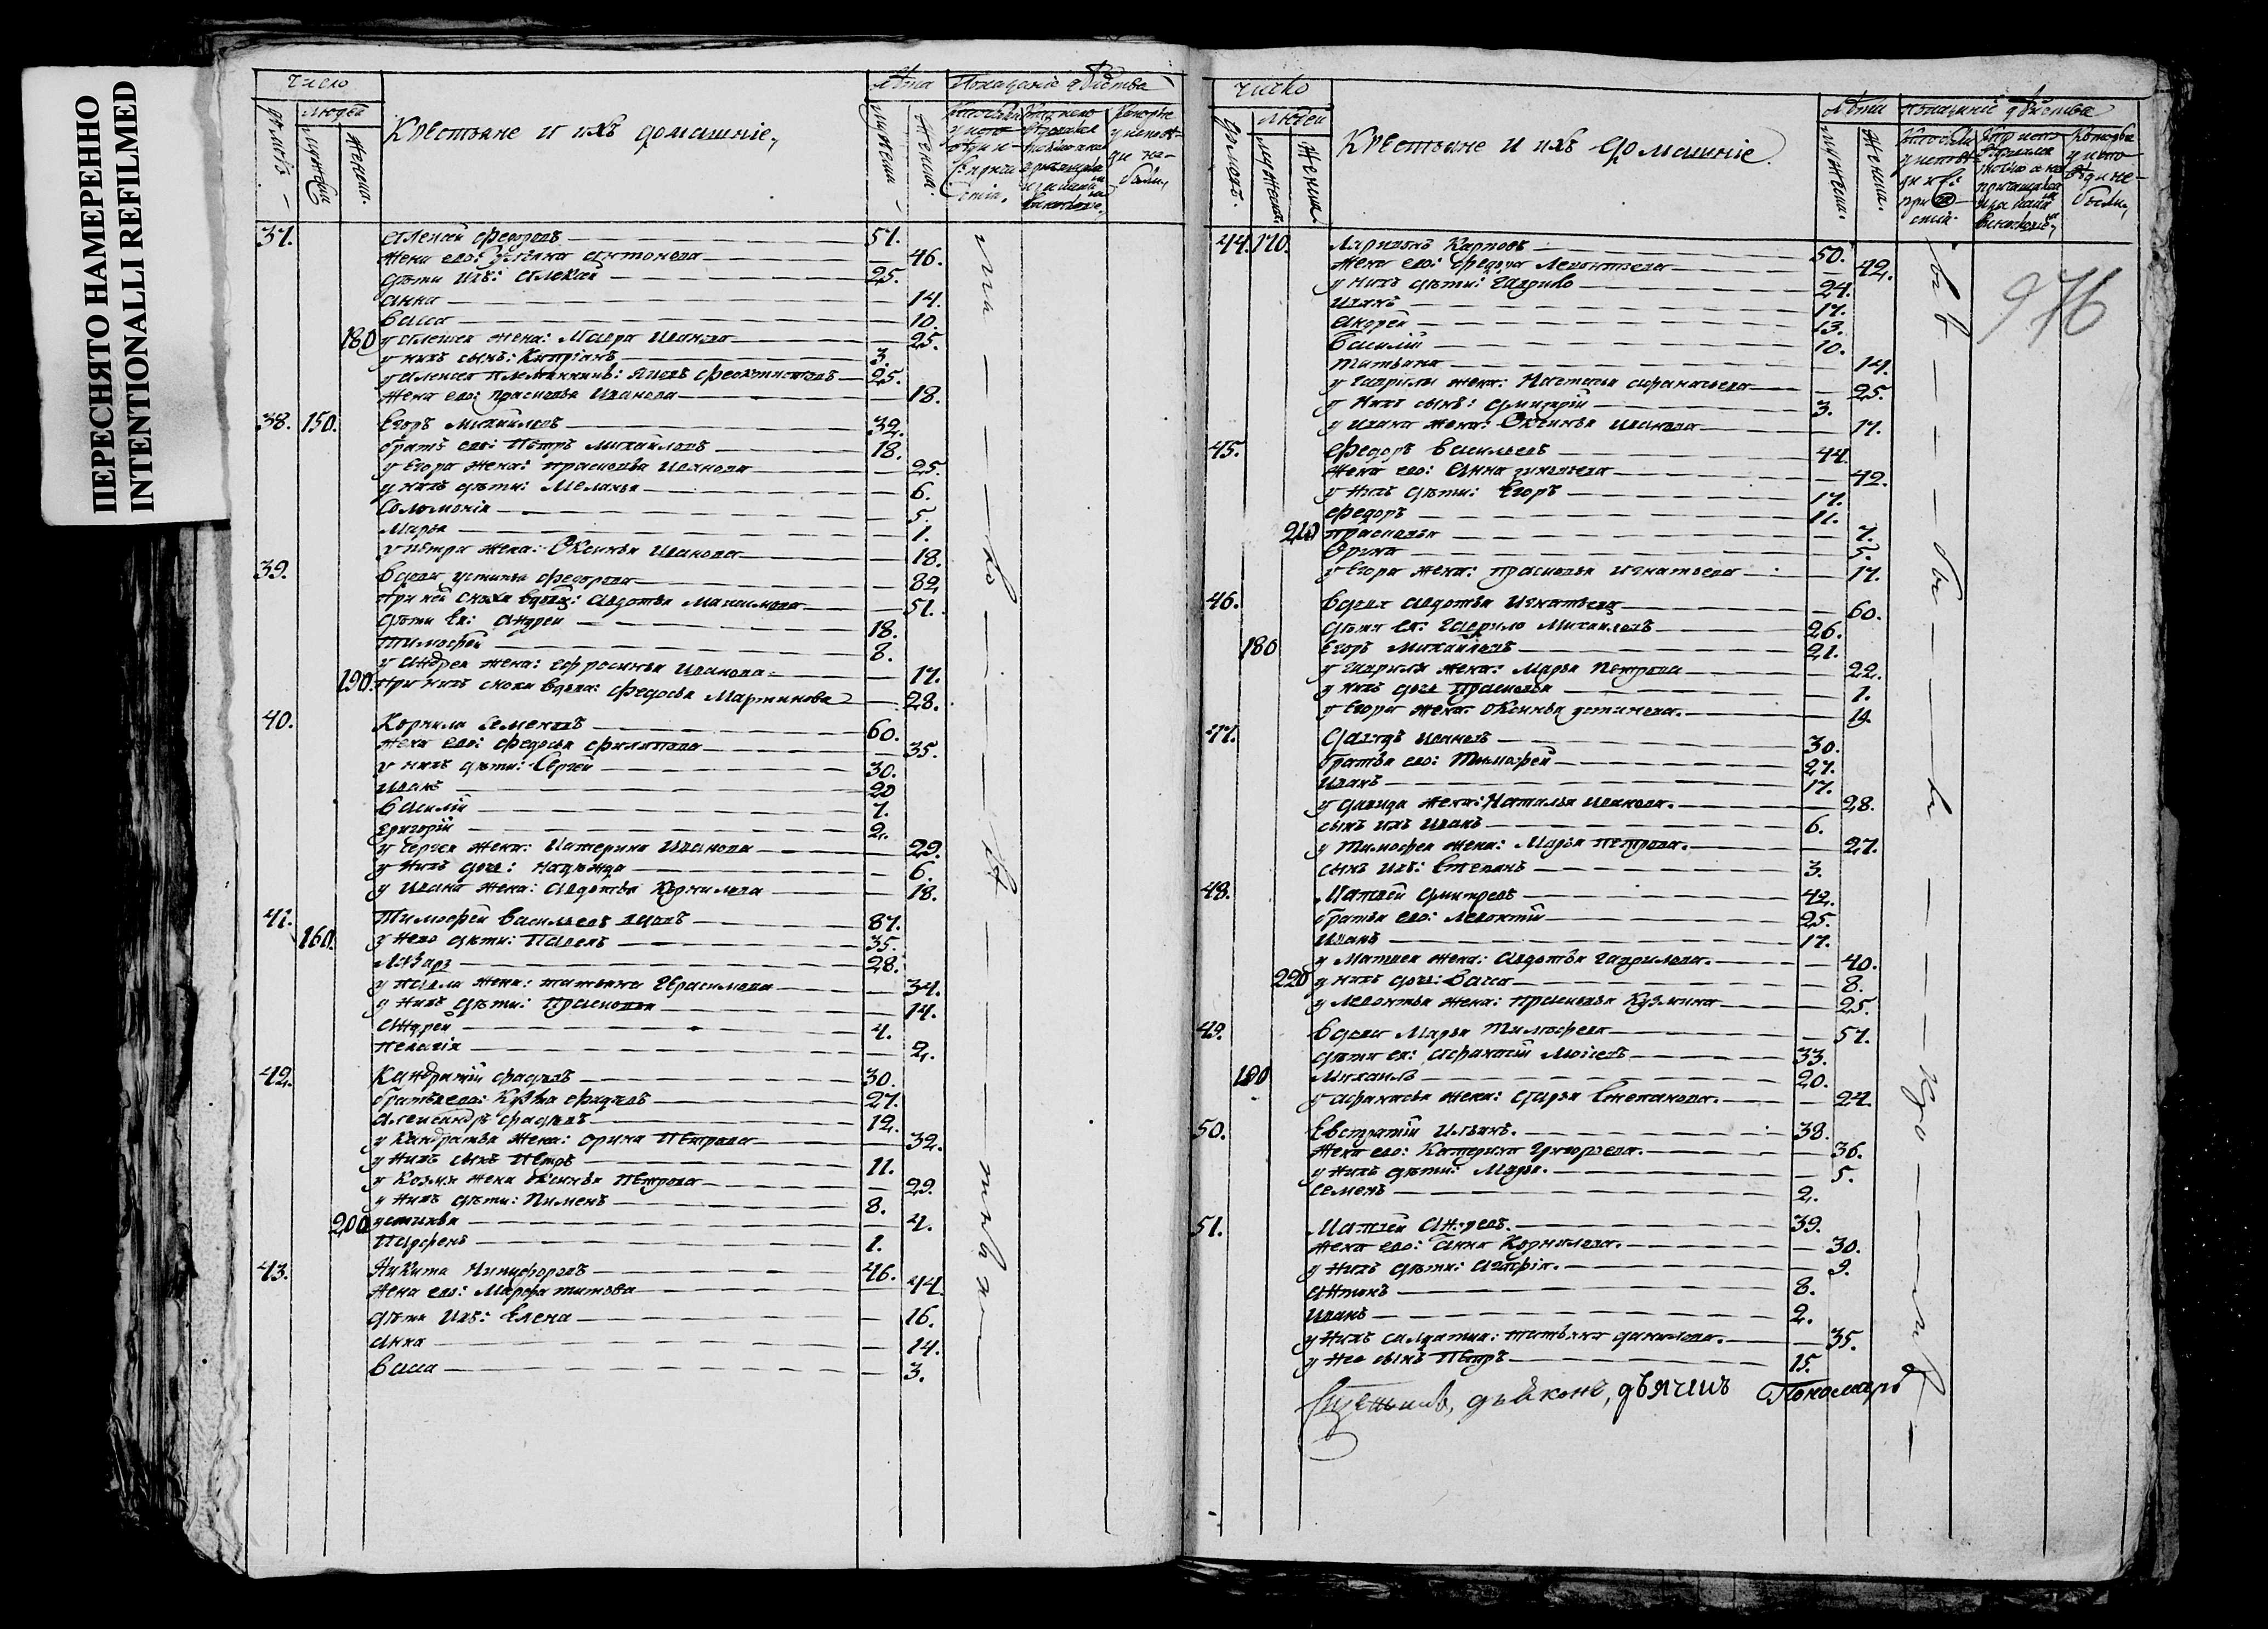 ПЕРЕСНЯТО НАМЕРЕННО
INTENTIONALLI REFILMED
Число
людей
Крестьяне и ихъ домашніе,
Лѣта
Показаніе дѣйства
37. Алексей Федоровъ 57.
жена ево: Ульяна Антонова 46.
дѣти ихъ: Алексей 25.
Анна 14.
Васса 10.
180 у Алексея жена: Мавра Иванова 25.
у нихъ сынъ: Кипріянъ 3.
у Алексея племянникъ: Яковъ Феоктистовъ 25.
жена ево: Прасковья Иванова 18.
38. 150. Егоръ Михайловъ 32.
братъ ево: Петръ Михайловъ 18.
у Егора жена: Прасковья Иванова 25.
у нихъ дѣти: Меланья 6.
Соломонія 5.
Марья 1.
у Петра жена: Оксинья Иванова 18.
39. Вдова Устинья Федорова 82
при ней сноха вдова: Авдотья Максимова 51.
дѣти ея: Андрей 18.
Тимофей 8.
у Андрея жена: Ефросинья Иванова 17.
190 при нихъ сноха вдова: Федосья Мартинова 28.
40. Корнила Семеновъ 60.
жена ево: Федосья Филипова 35.
у нихъ дѣти: Сергей 30.
Иванъ 20
Василій 7.
Григорій 2.
у Сергея жена: Катерина Иванова 29.
у нихъ дочь: Надежда 6.
у Ивана жена: Авдотья Корнилова 18.
41. Тимофей Васильевъ вдовъ 87.
160. у него дѣти: Павелъ 35.
Лазарь 28.
у Павла жена: Татьяна Герасимова 34.
у нихъ дѣти: Прасковья 14.
Андрей 4.
Пелагія 2.
42. Кандратій Фадѣевъ 30.
братья ево: Кузма Фадѣевъ 27.
Александръ Фадѣевъ 12.
у Кандратья жена: Орина Петрова 32.
у нихъ сынъ Петръ 11.
у Козмы жена Оксинья Петрова 29.
у нихъ дѣти: Пименъ 8.
200 Устинья 4.
Парфенъ 1.
43. Никита Никифоровъ 46.
жена ево: Марфа Титова 44.
дѣти ихъ: Елена 16.
Анна 14.
Васса 3.
Число
людей
Крестьяне и ихъ домашніе.
Лѣта
Показаніе дѣйства
976
44. 170. Ларионъ Карповъ 50.
жена ево: Федора Леонтьева 42.
у нихъ дѣти: Гаврило 24.
Иванъ 17.
Андрей 13.
Василій 10.
Татьяна 14.
у Гаврилы жена: Настасья Афанасьева 25.
у нихъ сынъ: Дмитрій 3.
у Ивана жена: Оксинья Иванова 17.
45. Федоръ Васильевъ 44.
жена ево: Анна 42.
у нихъ дѣти: Егоръ 17.
Федоръ 11.
210 Прасковья 7.
Орина 5.
у Егора жена: Прасковья Игнатьева 17.
46. Вдова Авдотья Игнатьева 60.
дѣти ея: Гаврило Михайловъ 26.
180 Егоръ Михайловъ 21.
у Гаврилы жена: Марья Петрова 22.
у нихъ дочь Прасковья 1.
у Егора жена: Оксинья Устинова. 19.
47. Давыдъ Ивановъ 30.
братья ево: Тимофей 27.
Иванъ 17.
у Давида жена: Наталья Иванова. 28.
сынъ ихъ Иванъ 6.
у Тимофея жена: Марья Петрова. 27.
сынъ ихъ: Степанъ 3.
48. Матвей Дмитревъ 42.
братья ево: Левонтій 25.
Иванъ 17.
у Матвея жена: Авдотья Гаврилова. 40.
220 у нихъ дочь: Васса 8.
у Левонтья жена: Прасковья Кузмина 25.
49. Вдова Марья Тимофеева 57.
дѣти ея: Афанасій Мойсеевъ 33.
190 Михаилъ 20.
у Афанасья жена: Дарья Степанова. 24.
50. Евстратій Ильинъ. 38.
жена ево: Катерина Григорьева. 36.
у нихъ дѣти: Марья. 5.
Семенъ 2.
51. Матвей Андреевъ. 39.
жена ево: Анна Корнилова. 30.
у нихъ дѣти: Агафія. 9.
Антонъ 8.
Иванъ 2.
у нихъ салдатка: Татьяна Данилова. 35.
у нее сынъ Петръ 15.
Священникъ, дьяконъ, дьячокъ Пономарь